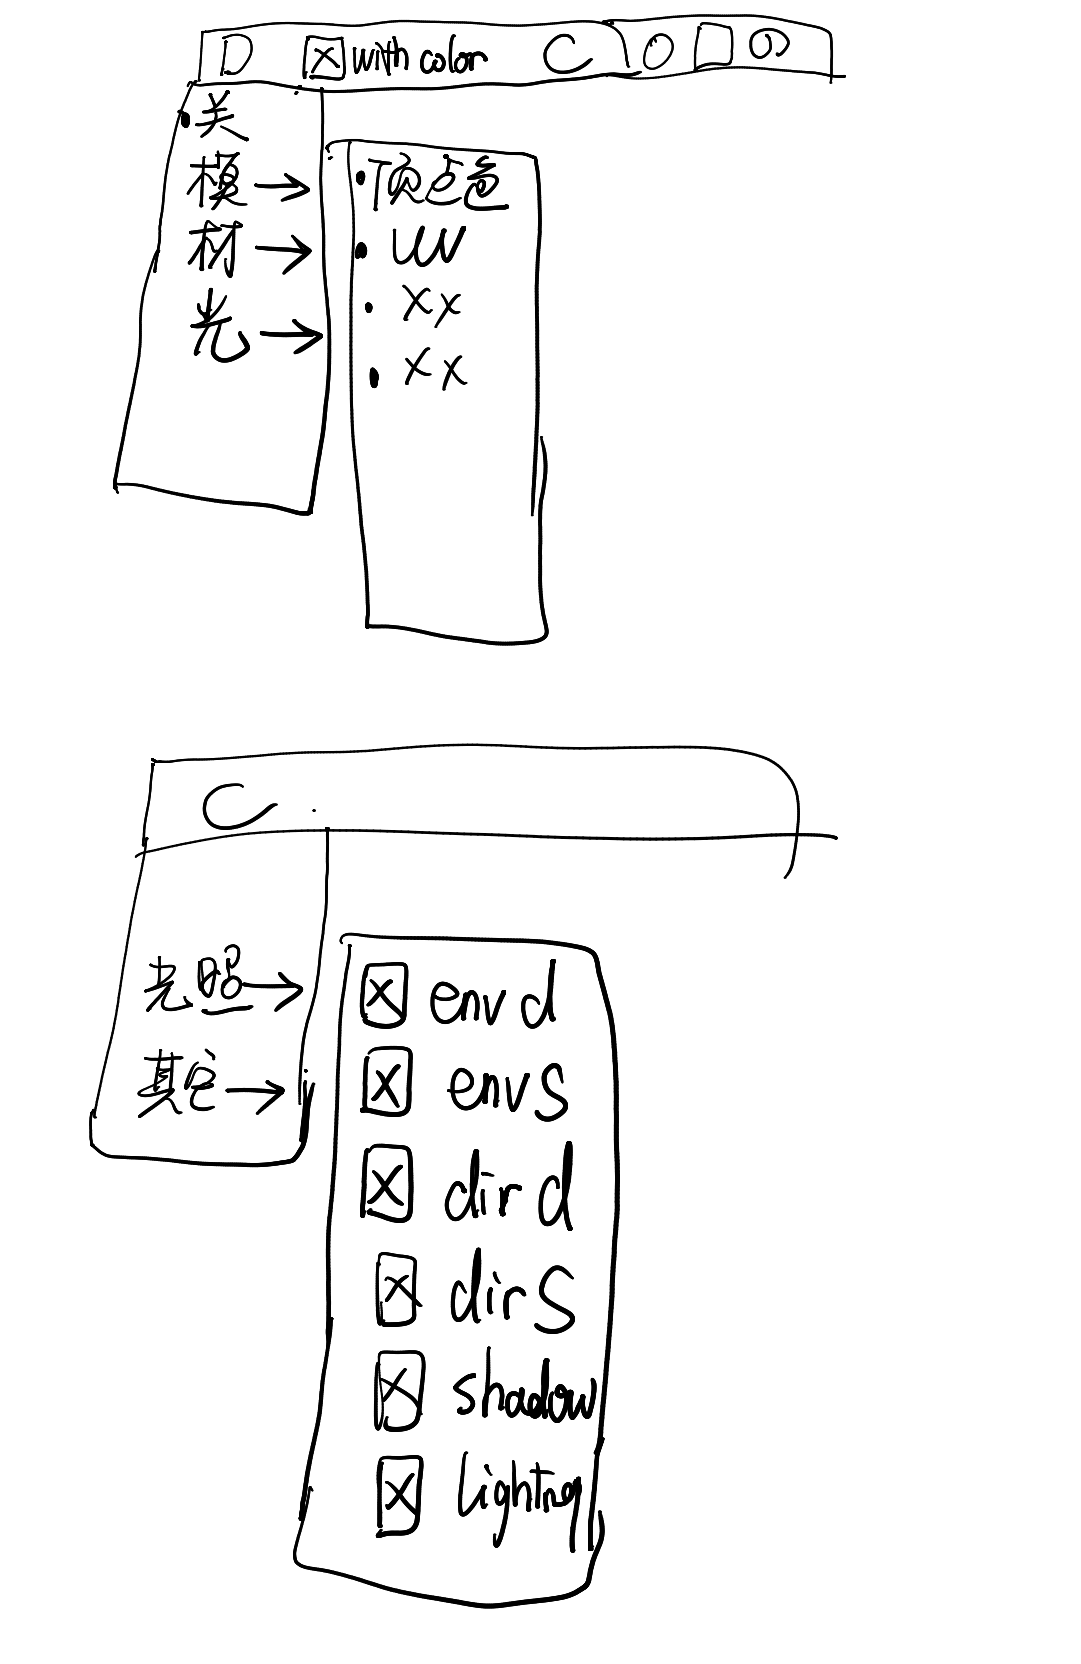 D ☒ with color C
关
模 →
材 →
光 →
• 顶点色
• UV
• xx
• xx
C
光照 →
其它 →
☒ env d
☒ env S
☒ dir d
☒ dir S
☒ shadow
☒ lighting